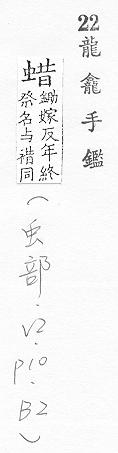 22龍龕手鑑
蜡鋤嫁反年終
祭名与䄍同
(虫部.V2.P10.B2)